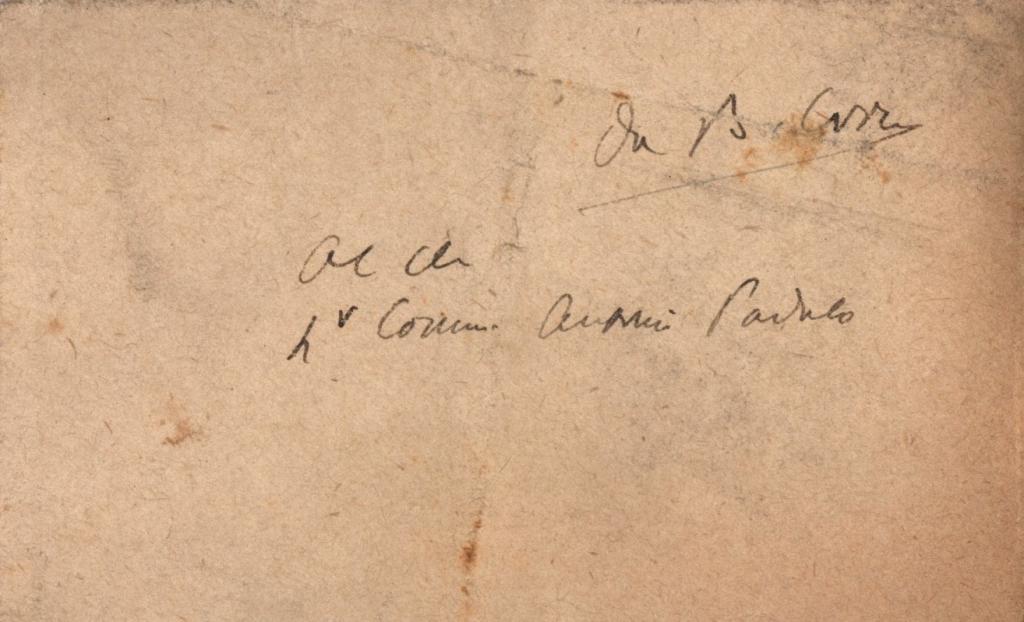 Da B. Croce
Al ch.
Sr Comm. Antonio Padula